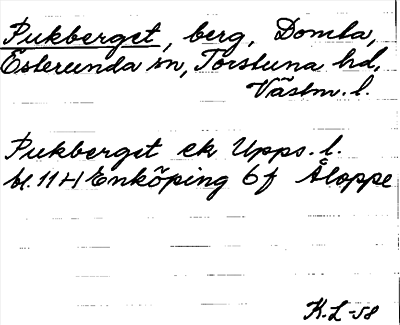 Pukberget, berg, Domta,
Österunda sn, Torstuna hd,
Västm. l.
Pukberget ek Upps. l.
bl. 11H Enköping 6f Åloppe
K.L-58